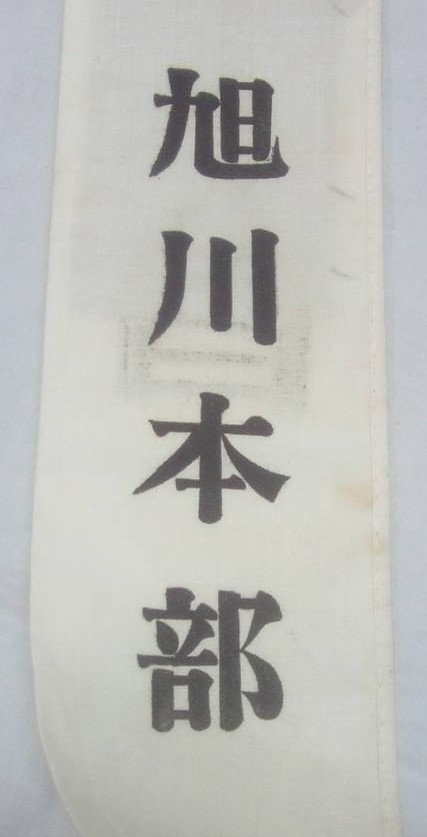 旭川本部